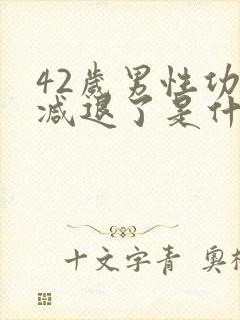 42岁男性功
减退了是什
十文字青 奥